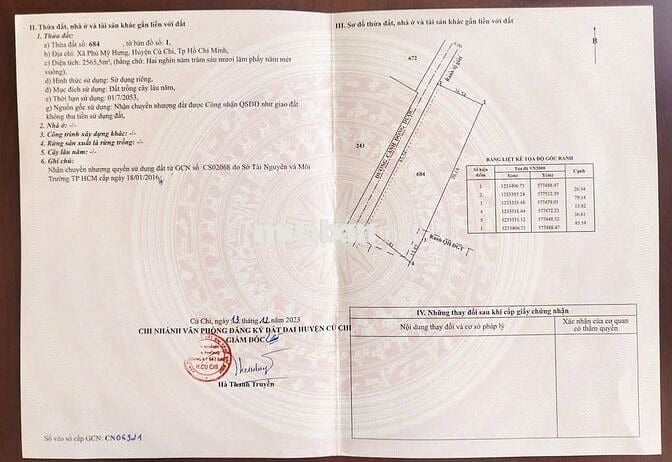 II. Thửa đất, nhà ở và tài sản khác gắn liền với đất
1. Thửa đất:
a) Thửa đất số: 684 , tờ bản đồ số: 1,
b) Địa chỉ: Xã Phú Mỹ Hưng, Huyện Củ Chi, Tp Hồ Chí Minh,
c) Diện tích: 2565,5m², (bằng chữ: Hai nghìn năm trăm sáu mươi lăm phẩy năm mét
vuông),
d) Hình thức sử dụng: Sử dụng riêng,
đ) Mục đích sử dụng: Đất trồng cây lâu năm,
e) Thời hạn sử dụng: 01/7/2053,
g) Nguồn gốc sử dụng: Nhận chuyển nhượng đất được Công nhận QSDĐ như giao đất
không thu tiền sử dụng đất,
2. Nhà ở: -/-
3. Công trình xây dựng khác: -/-
4. Rừng sản xuất là rừng trồng: -/-
5. Cây lâu năm: -/-
6. Ghi chú:
Nhận chuyển nhượng quyền sử dụng đất từ GCN số CS02068 do Sở Tài Nguyên và Môi
Trường TP HCM cấp ngày 18/01/2016
Củ Chi, ngày 13 tháng 12 năm 2023
CHI NHÁNH VĂN PHÒNG ĐĂNG KÝ ĐẤT ĐAI HUYỆN CỦ CHI
GIÁM ĐỐC
H.CỦ CHI
Hà Thanh Truyền
Số vào sổ cấp GCN: CN06921
III. Sơ đồ thửa đất, nhà ở và tài sản khác gắn liền với đất
B
672
Ranh lộ giới
26.54
ĐƯỜNG CÁNH ĐỒNG DƯỢC
243
684
79.14
Ranh QH ĐCT
BẢNG LIỆT KÊ TỌA ĐỘ GÓC RANH
Số hiệu điểm
Tọa độ VN2000
X(m)
Y(m)
Cạnh
1 1233406.73 577488.47
26.54
2 1233395.24 577512.39
79.14
3
13.82
4
36.81
5
85.54
1 1233406.73 577488.47
IV. Những thay đổi sau khi cấp giấy chứng nhận
Nội dung thay đổi và cơ sở pháp lý
Xác nhận của cơ quan
có thẩm quyền